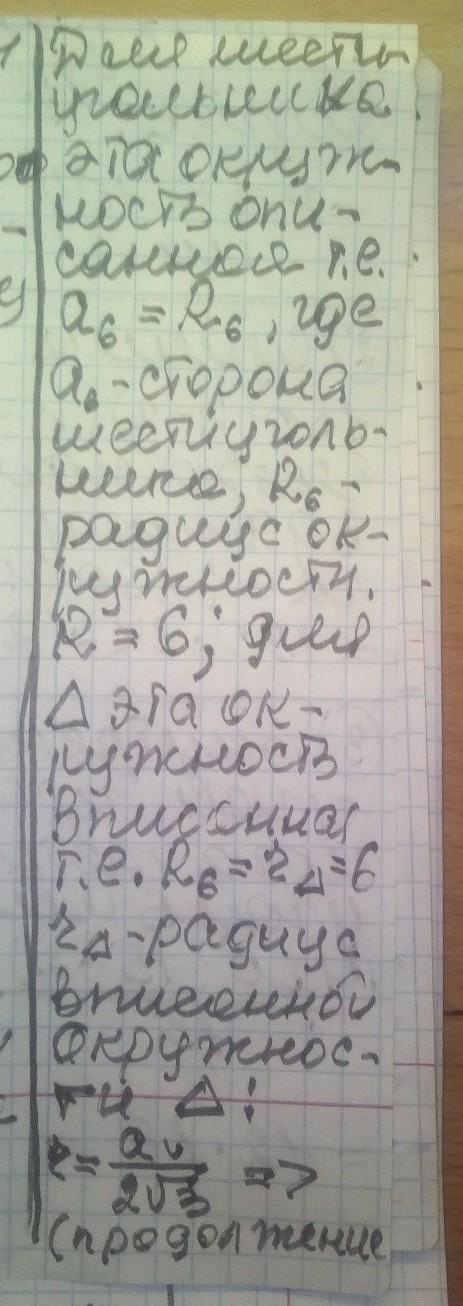 Для шести-
угольника
эта окруж-
ность опи-
санная т.е.
a₆ = R₆, где
a₆ - сторона
шестиуголь-
ника, R₆ -
радиус ок-
ружности.
R = 6; для
Δ эта ок-
ружность
вписанная
т.е. R₆ = r_Δ = 6
r_Δ - радиус
вписанной
окружнос-
ти Δ:
r = a/2√3 =>
(продолжение